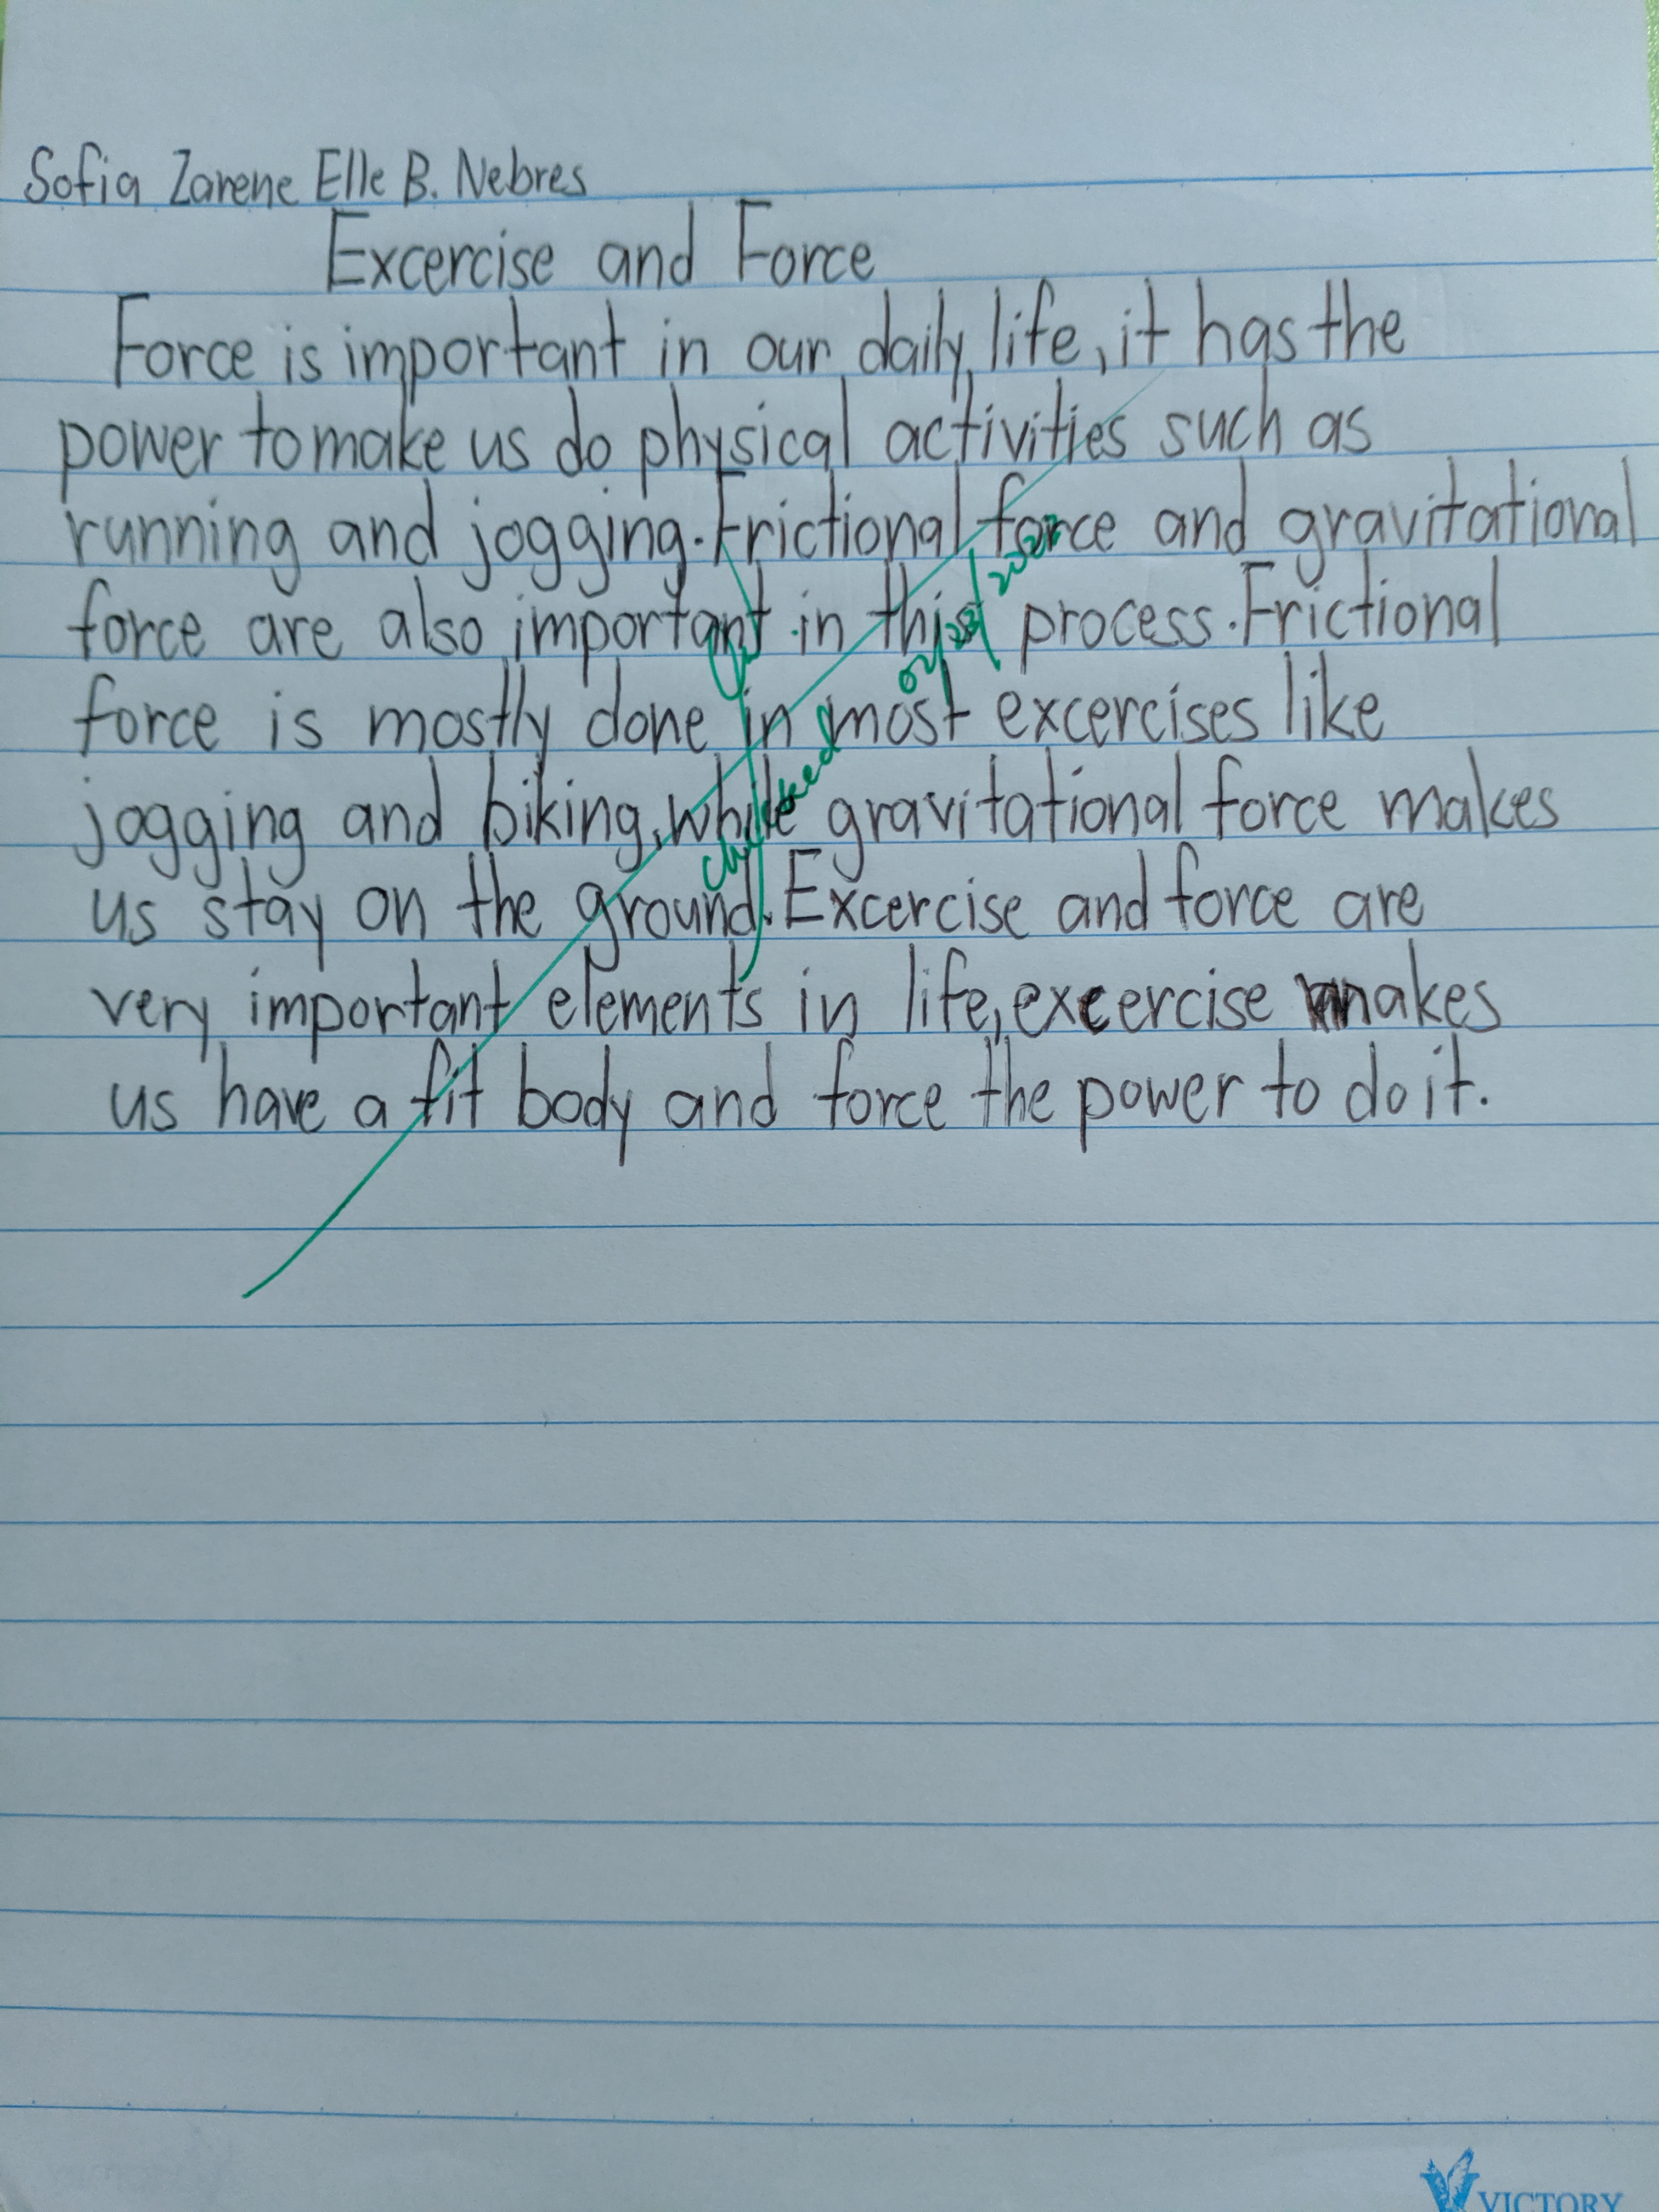 Sofia Zarene Elle B. Nebres
Excercise and Force
Force is important in our daily life, it has the
power to make us do physical activities such as
running and jogging. Frictional force and gravitational
force are also important in this process. Frictional
force is mostly done in most excercises like
jogging and biking, while gravitational force makes
us stay on the ground. Excercise and force are
very important elements in life, excercise makes
us have a fit body and force the power to do it.
checked
VICTORY